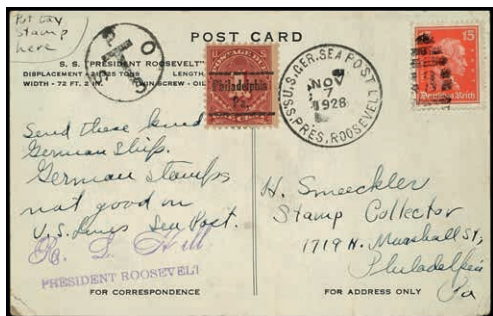 Put Ger
Stamp
here
POST CARD
S. S. "PRESIDENT ROOSEVELT"
DISPLACEMENT TONS LENGTH,
WIDTH - 72 FT. 2 IN. TWIN SCREW - OIL
Philadelphia
Pa.
U.S. GER. SEA POST
NOV
7
1928
S.S. PRES. ROOSEVELT
15
Deutsches Reich
Send these kind
German Ships.
German Stamps
not good on
U.S. Lines Sea Post.
PRESIDENT ROOSEVELT
H. Smeckler
Stamp Collector
1719 N. Marshall St,
Philadelphia
Pa
FOR CORRESPONDENCE
FOR ADDRESS ONLY